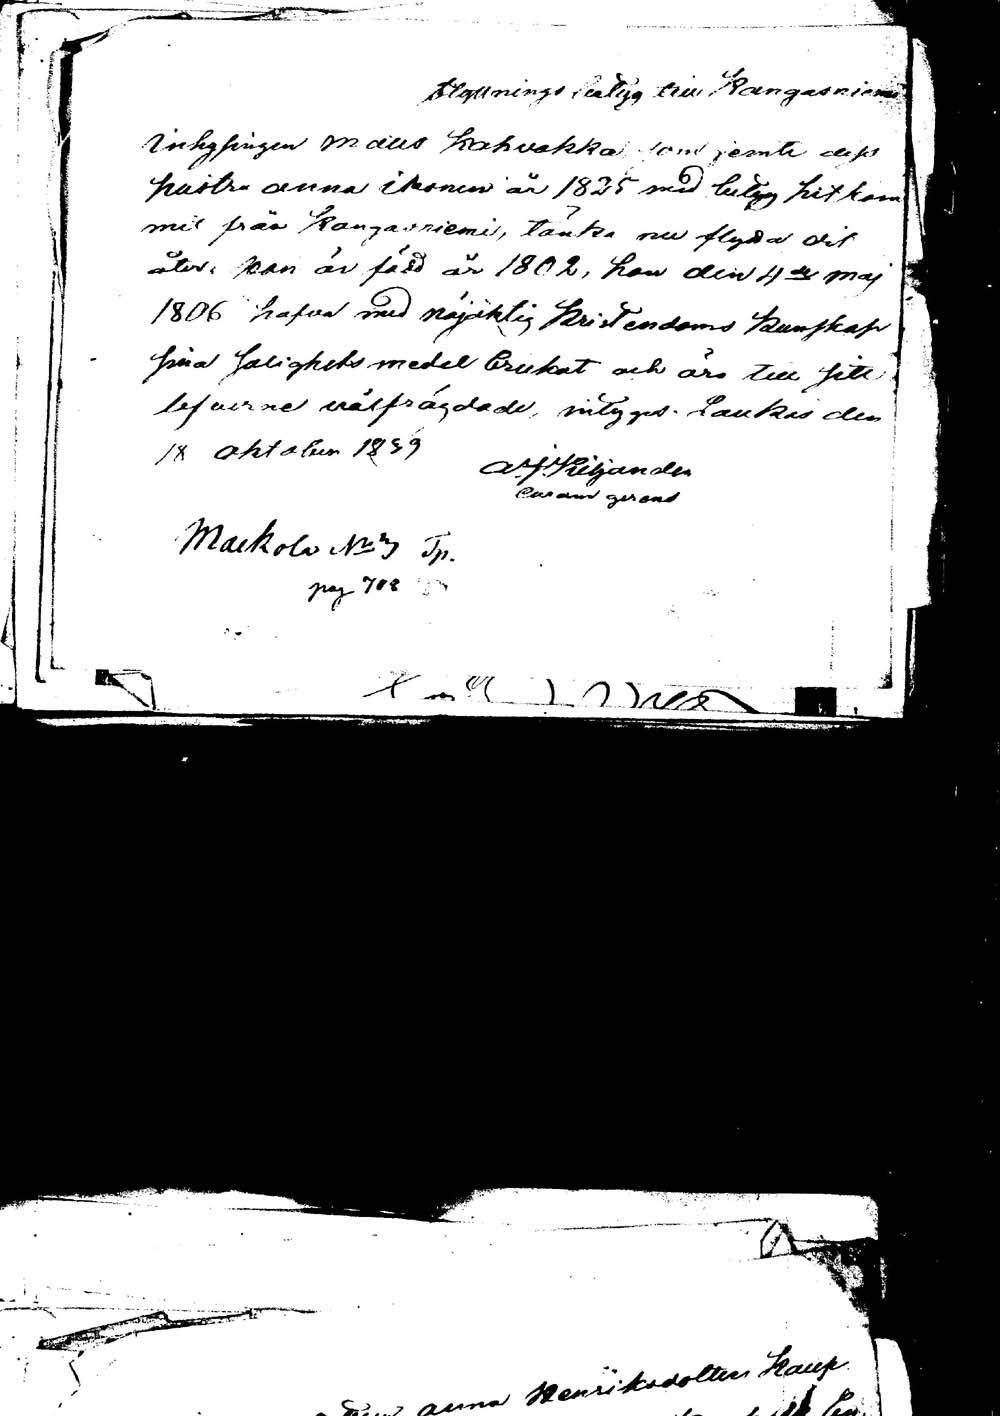 flyttnings betyg till Kangasniemi
Inhysingen Matts Kahvakka som jemte dess
hustru Anna Ikonen år 1825 med betyg hit kom
mit från Kangasniemi, tänka nu flytta dit
åter. Han är född år 1802, hon den 4de Maj
1806 hafva med nöjaktig Kristendoms kunskap
sina salighets medel brukat och äro till sitt
lefverne välfrägdade, intygas. Laukas den
18 oktober 1839
A. J. Kiljander
Curam gerens
Maekola No 3 Tp.
pag 708
Anna Henriksdotter Kaup